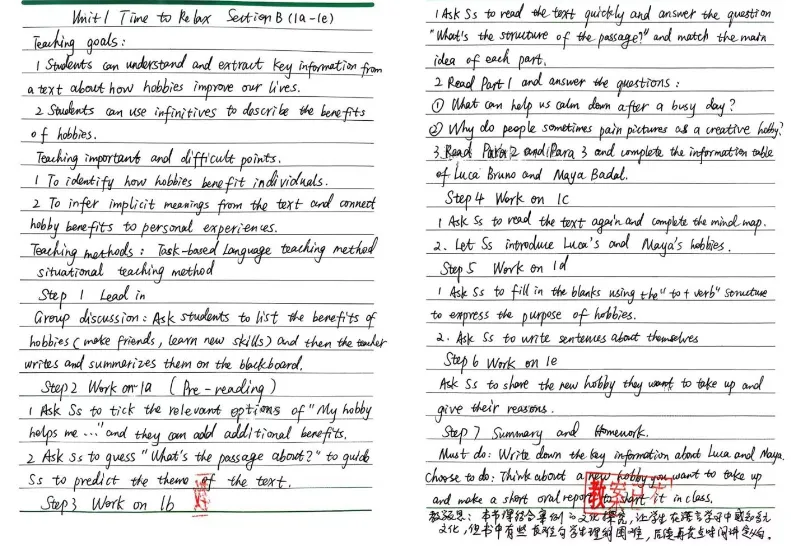 Unit 1 Time to Relax Section B (1a-1e)
Teaching goals:
1 Students can understand and extract key information from
a text about how hobbies improve our lives.
2 Students can use infinitives to describe the benefits
of hobbies.
Teaching important and difficult points.
1 To identify how hobbies benefit individuals.
2 To infer implicit meanings from the text and connect
hobby benefits to personal experiences.
Teaching methods: Task-based Language teaching method
situational teaching method
Step 1 Lead in
Group discussion: Ask students to list the benefits of
hobbies (make friends, learn new skills) and then the teacher
writes and summarizes them on the blackboard.
Step 2 Work on 1a (Pre-reading)
1 Ask Ss to tick the relevant options of "My hobby
helps me ..." and they can add additional benefits.
2 Ask Ss to guess "What's the passage about?" to guide
Ss to predict the theme of the text.
Step 3 Work on 1b
1 Ask Ss to read the text quickly and answer the question
"What's the structure of the passage?" and match the main
idea of each part.
2 Read Part 1 and answer the questions:
① What can help us calm down after a busy day?
② Why do people sometimes pain pictures as a creative hobby?
3 Read Para 2 and Para 3 and complete the information table
of Luca Bruno and Maya Badal.
Step 4 Work on 1c
1 Ask Ss to read the text again and complete the mind map.
2. Let Ss introduce Luca's and Maya's hobbies.
Step 5 Work on 1d
1 Ask Ss to fill in the blanks using the "to + verb" structure
to express the purpose of hobbies.
2. Ask Ss to write sentences about themselves
Step 6 Work on 1e
Ask Ss to share the new hobby they want to take up and
give their reasons.
Step 7 Summary and Homework.
Must do: Write down the key information about Luca and Maya.
Choose to do: Think about a new hobby you want to take up
and make a short oral report to it in class.
教 案